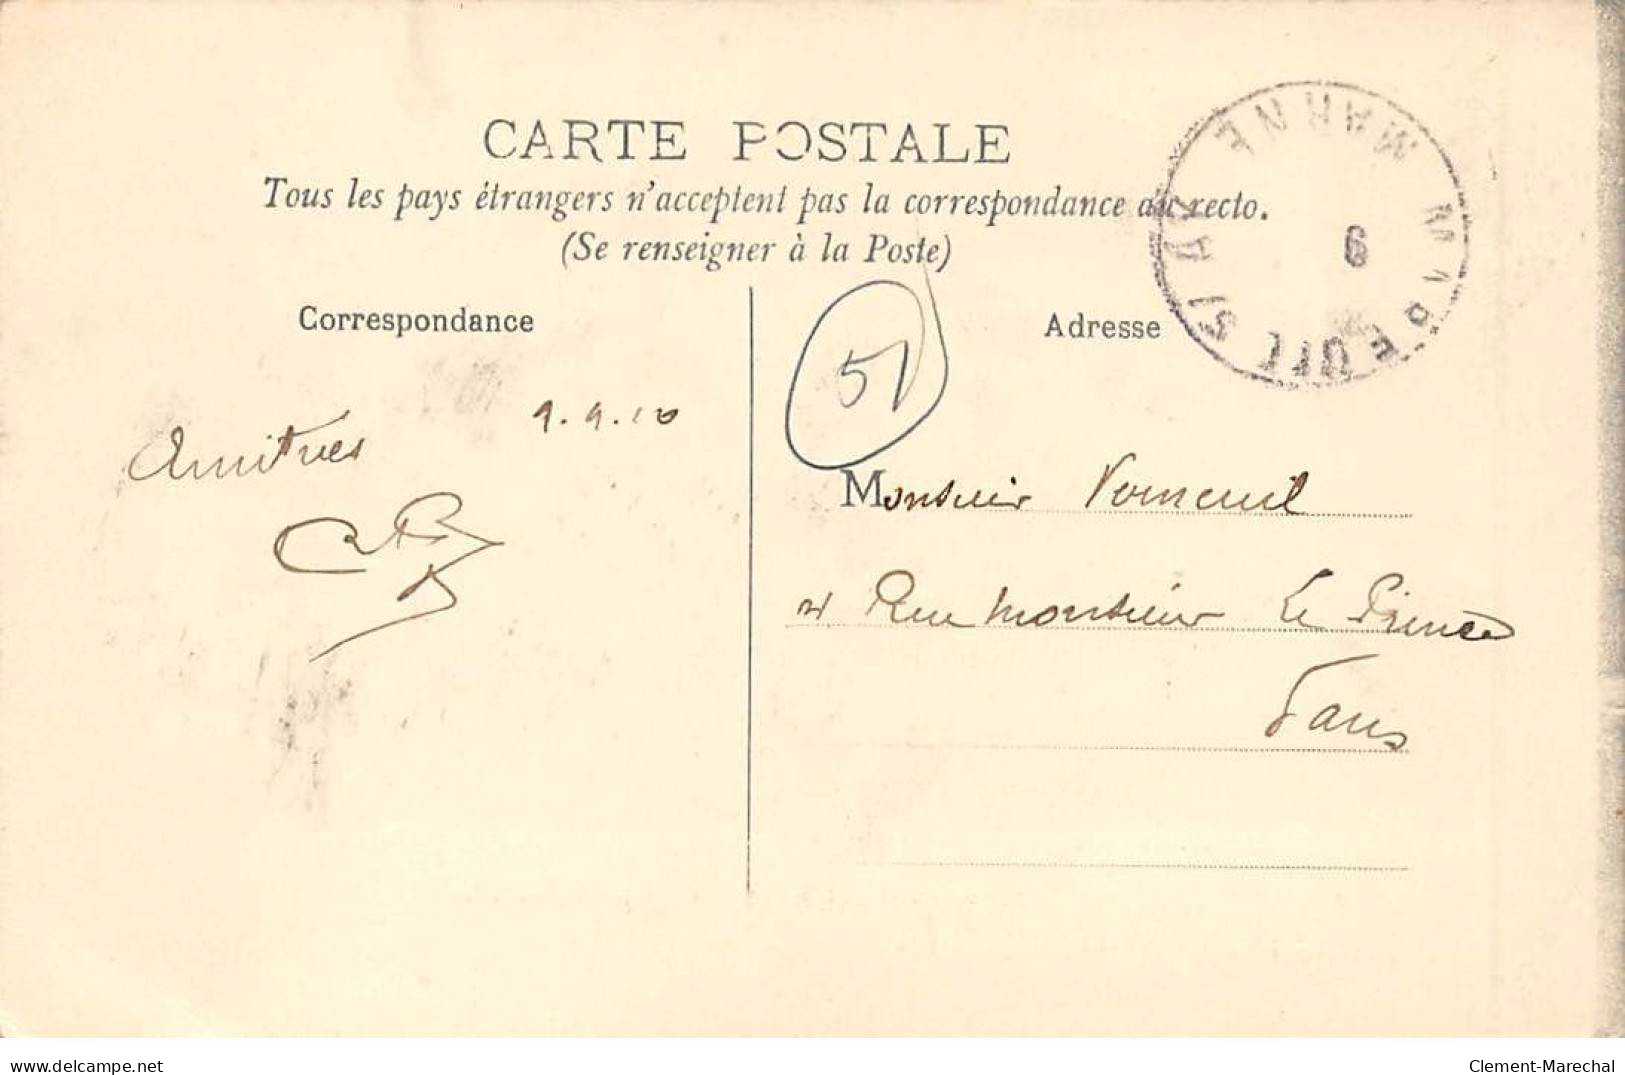 CARTE POSTALE
Tous les pays étrangers n'acceptent pas la correspondance au recto.
(Se renseigner à la Poste)
Correspondance
Adresse
MARNE
6
51
9.9.10
Amitiés
Monsieur Verneuil
Rue Monsieur Le Prince
Paris
delcampe.net
Clement-Marechal